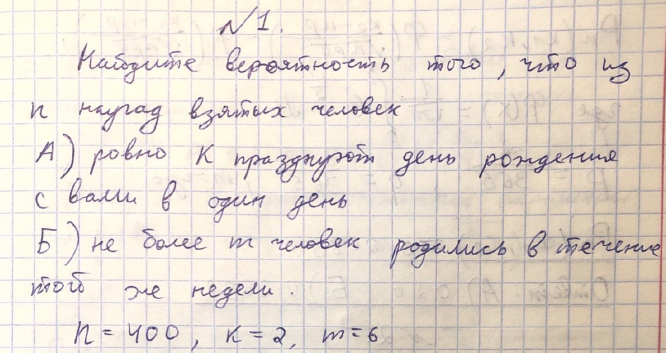 №1.
Найдите вероятность того, что из
n наугад взятых человек
А) ровно К празднуют день рождения
с вами в один день
Б) не более m человек родились в течение
той же недели.
n = 400, к = 2, m = 6